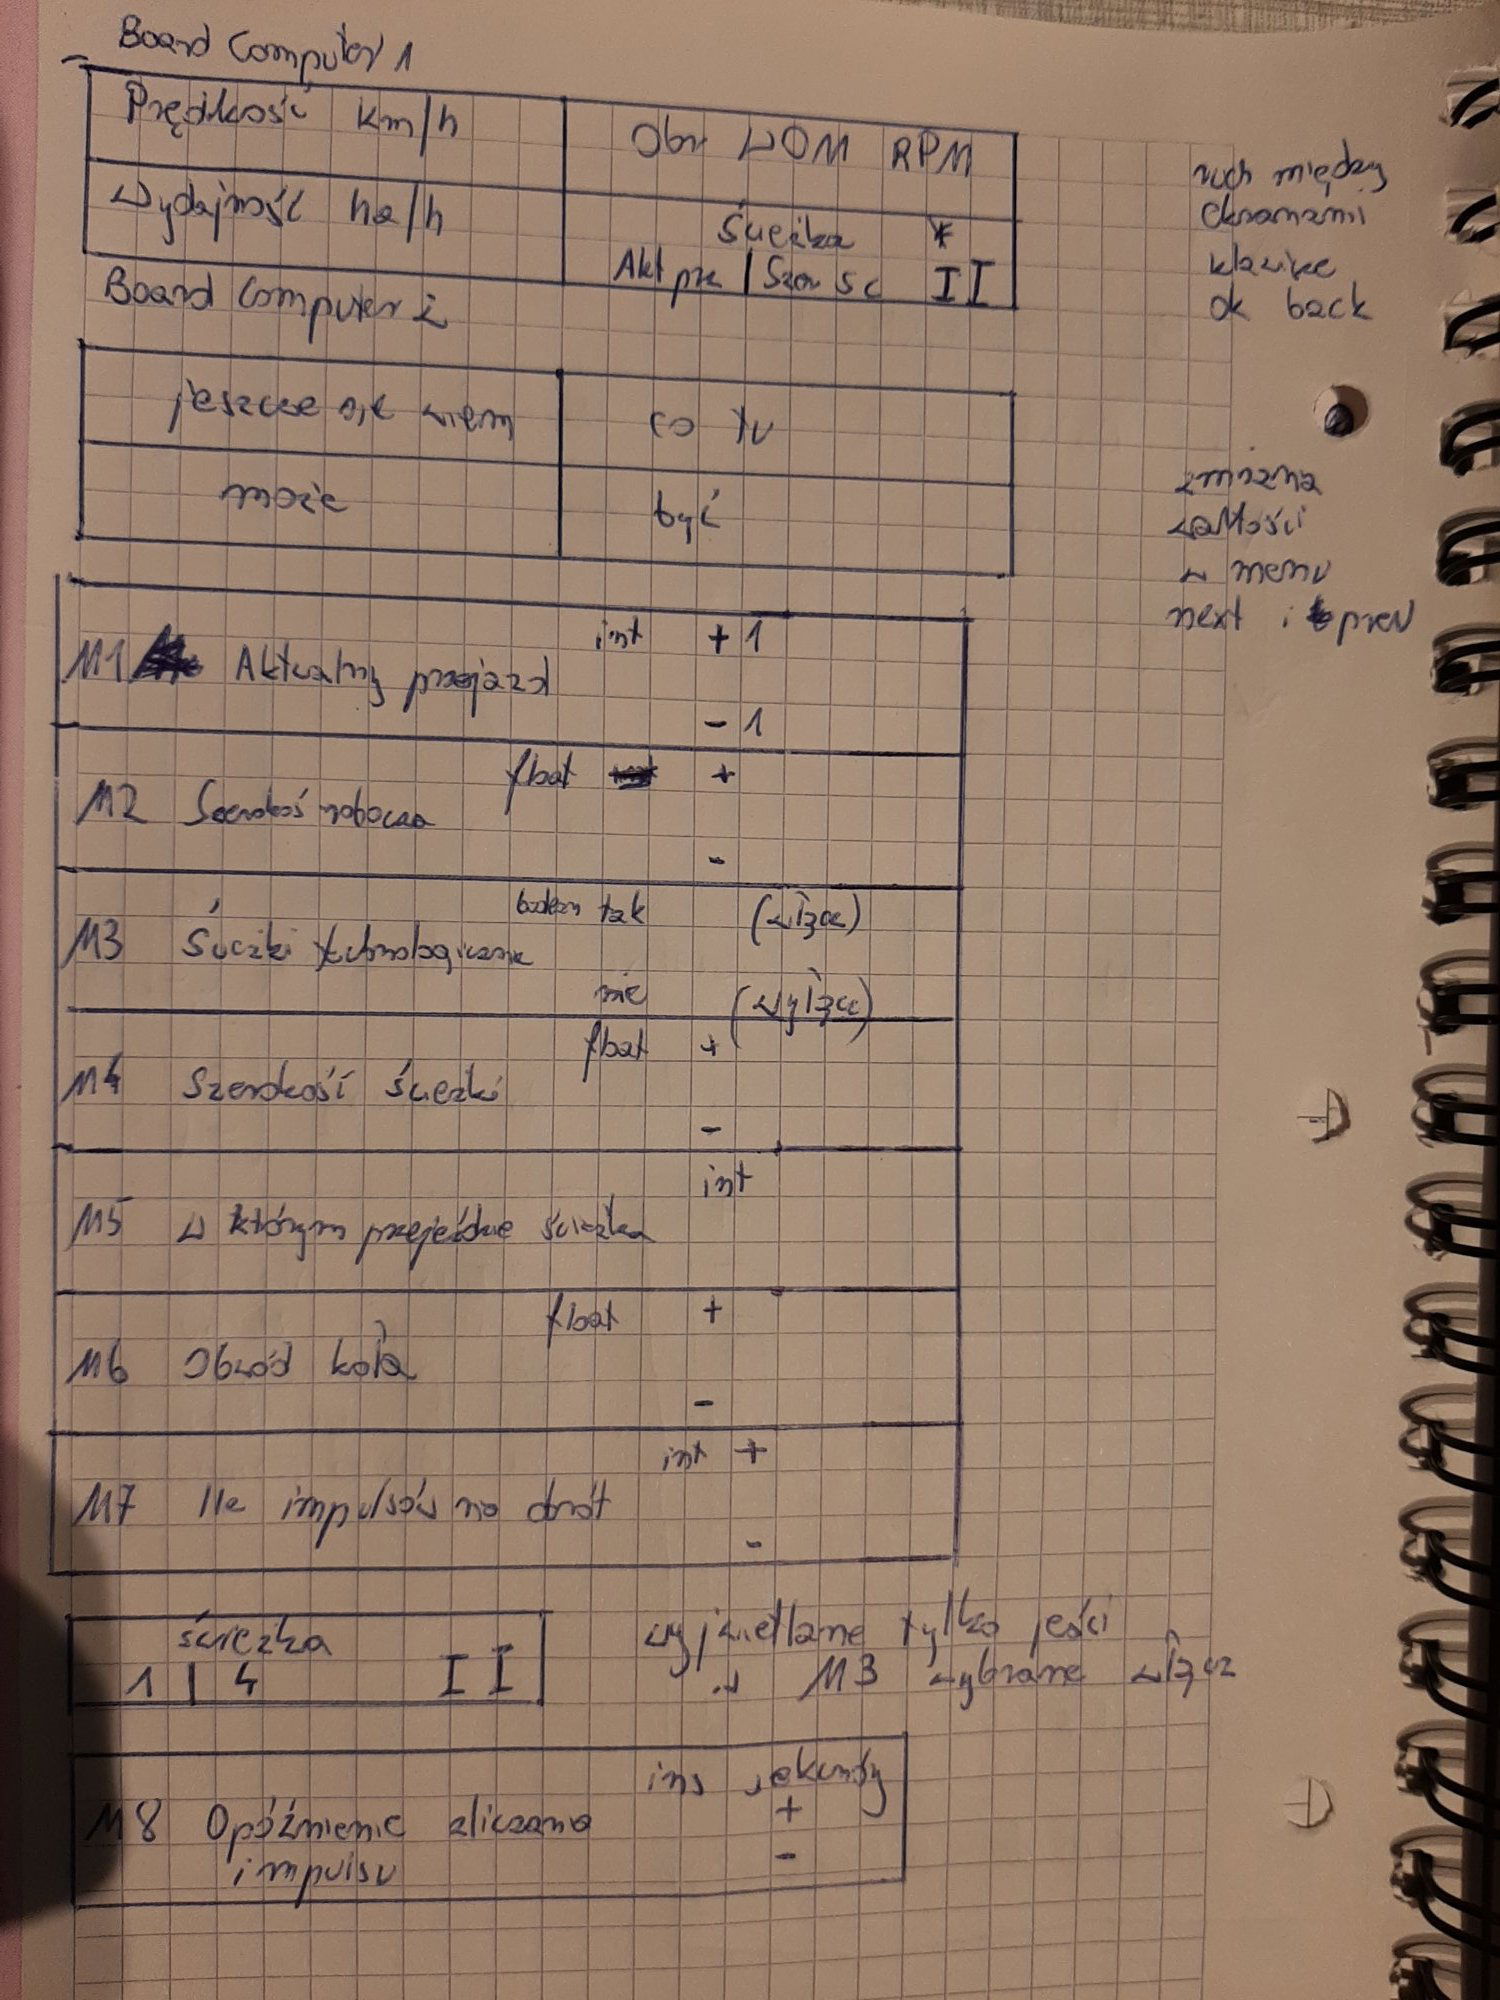 Board Computer 1
Prędkość km/h
Obr WOM RPM
ruch między
ekranami
klawisze
ok back
Wydajność ha/h
Ścieżka *
Akt prze | Szer sc II
Board Computer 2
jeszcze nie wiem
co tu
może
być
zmiana
wartości
w menu
next i prev
M1 Aktualny przejazd
int +1
-1
M2 Szerokość robocza
float +
-
M3 Ścieżki technologiczne
boolean tak (włącz)
nie (wyłącz)
M4 Szerokość ścieżki
float +
-
M5 W którym przejeździe ścieżka
int
M6 Obwód koła
float +
-
M7 Ile impulsów na obrót
int +
-
ścieżka
1 | 4 II
wyświetlane tylko jeśli
w M3 wybrane włącz
M8 Opóźnienie zliczania
impulsu
sekundy
+
-